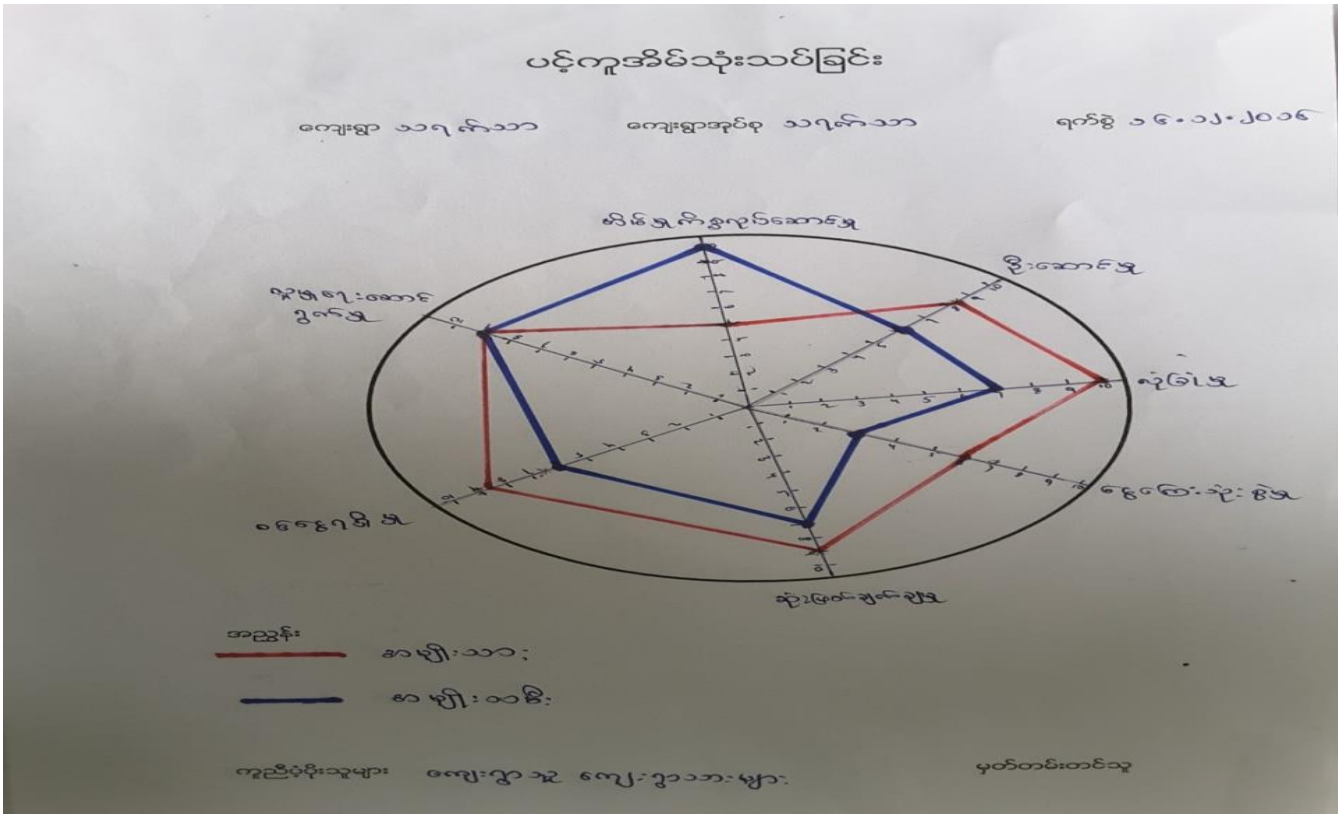 ပင့်ကူအိမ်သုံးသပ်ခြင်း
ကျေးရွာ သရက်သာ ကျေးရွာအုပ်စု သရက်သာ ရက်စွဲ ၁၆.၁၂.၂၀၁၆
အိမ်မှုကိစ္စလုပ်ဆောင်မှု
ဦးဆောင်မှု
လူမှုရေးဆောင်
ရွက်မှု
လုံခြုံမှု
ငွေကြေးသုံးစွဲမှု
ဝင်ငွေရရှိမှု
ဆုံးဖြတ်ချက်ချမှု
အညွှန်း
အမျိုးသား
အမျိုးသမီး
ကူညီပံ့ပိုးသူများ ကျေးရွာသူ ကျေးရွာသားများ မှတ်တမ်းတင်သူ